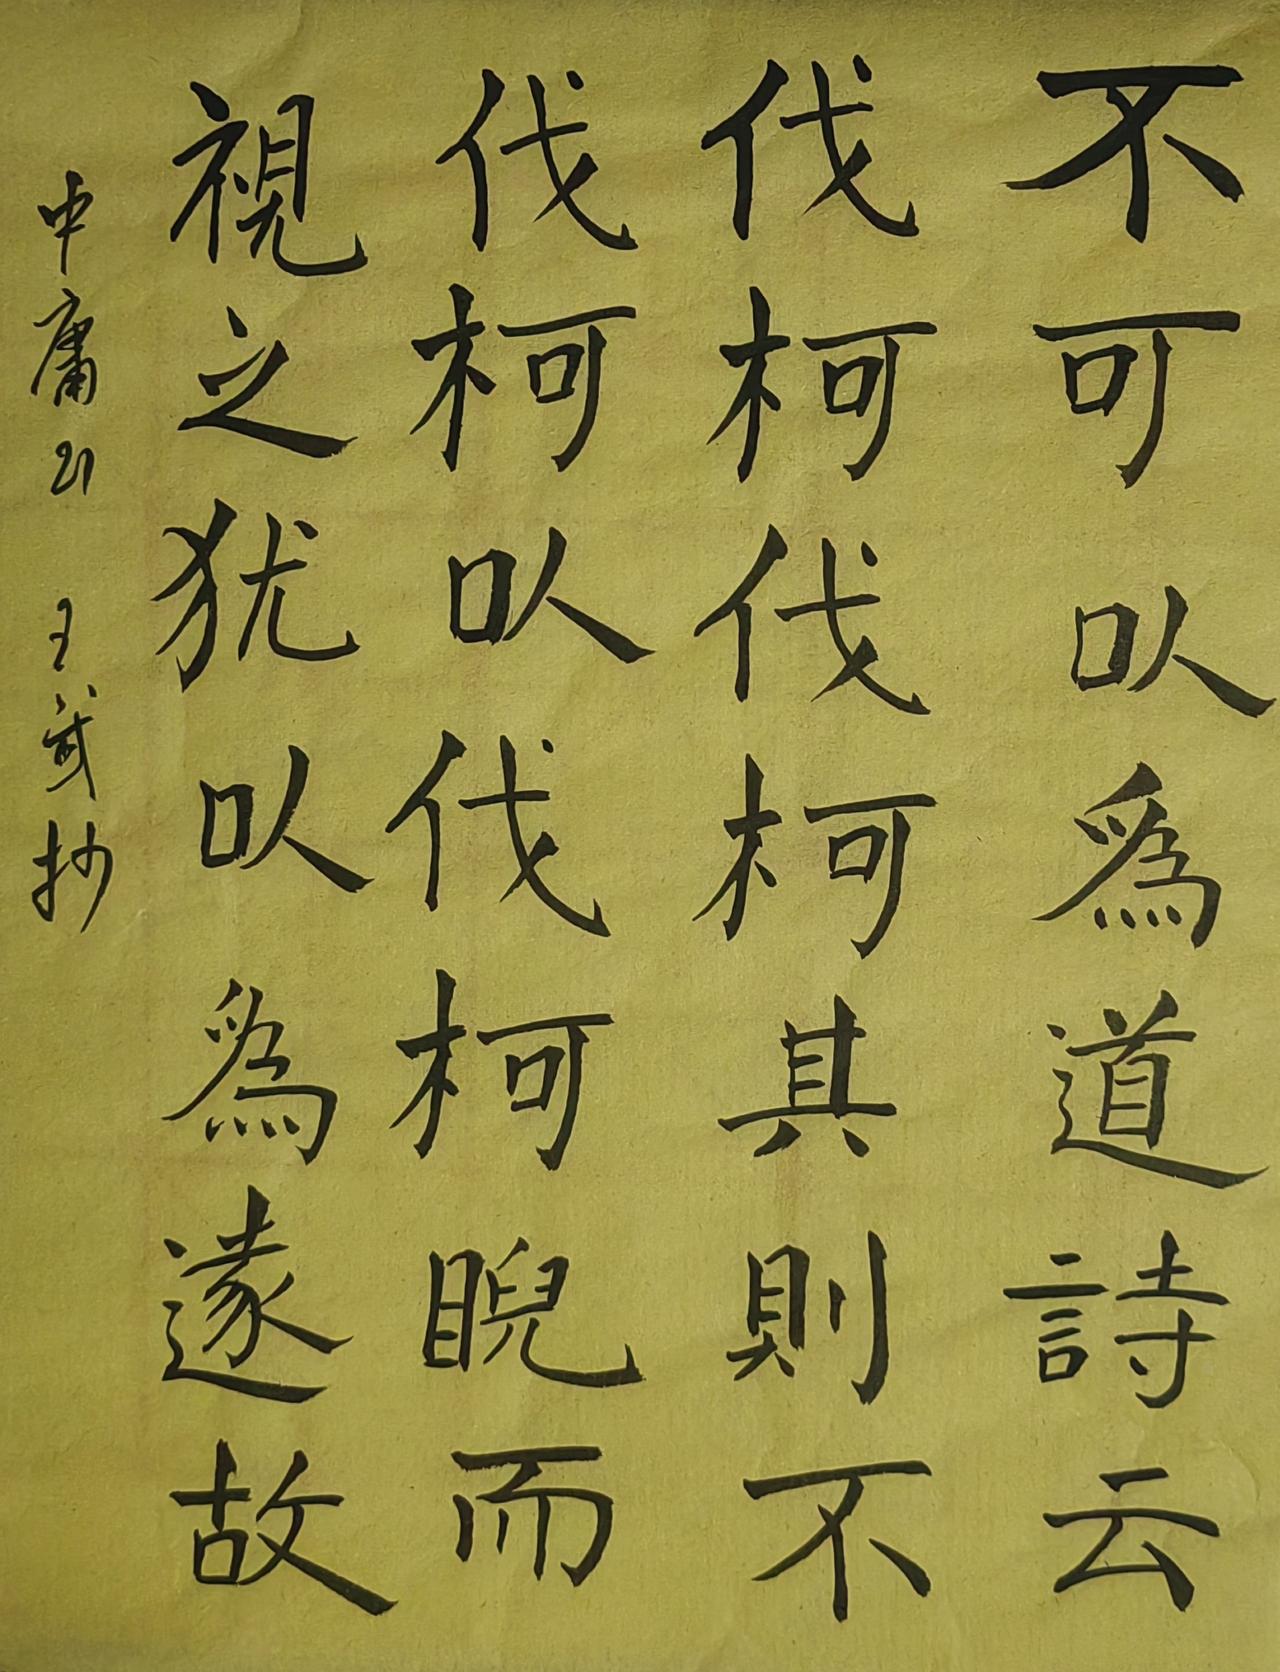 不可以爲道詩云
伐柯伐柯其則不
伐柯以伐柯睨而
視之犹以爲遠故
中庸 王 抄